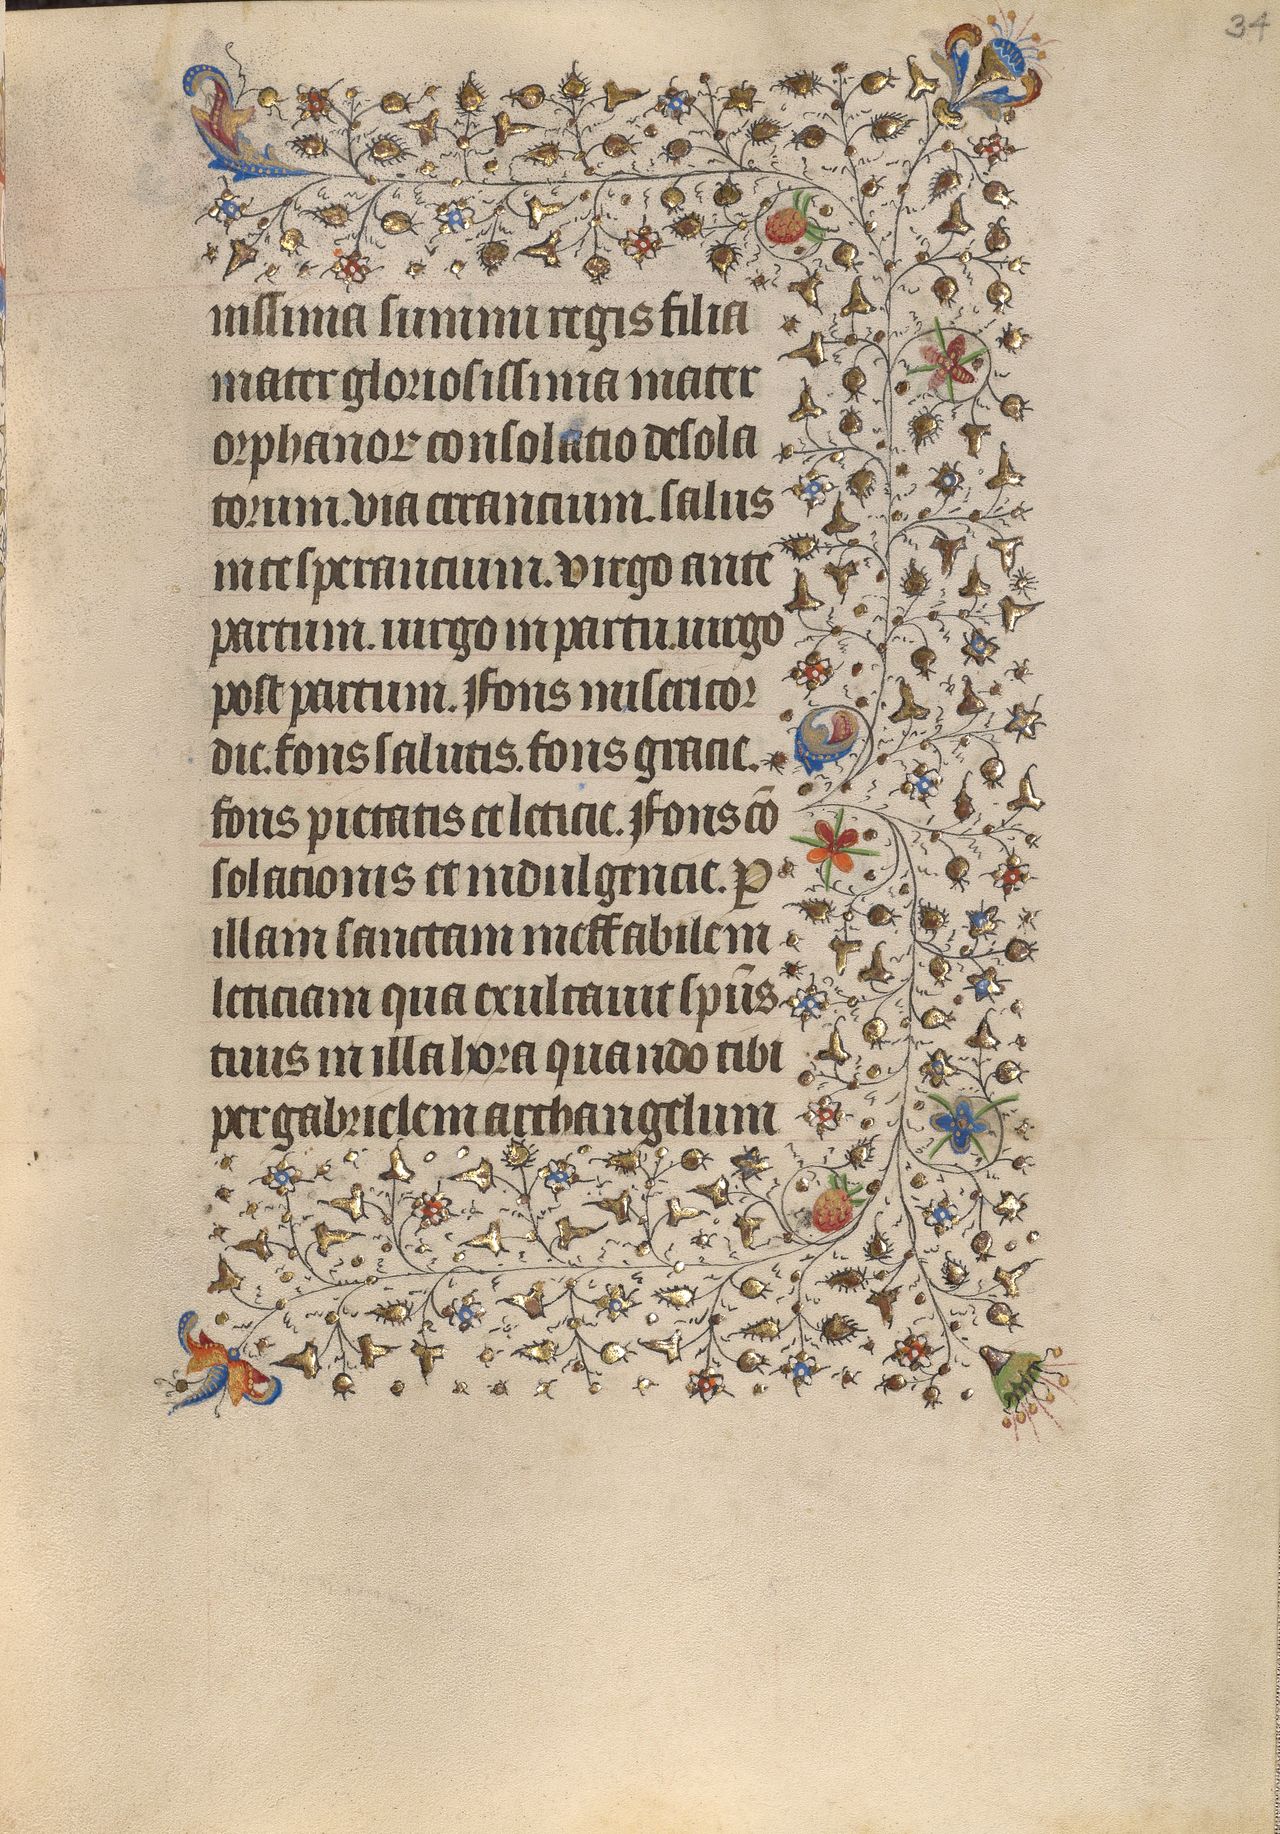 34
nissima summi regis filia
mater gloriosissima mater
orphanoꝝ consolatio desola
torum. via errantium. salus
in te sperantium. Virgo ante
partum. uirgo in partu. uirgo
post partum. Fons misericor
die. fons salutis. fons gracie.
fons pietatis et leticie. Fons cō
solationis et indulgencie. P
illam sanctam ineffabilem
leticiam qua exultauit spūs
tuus in illa hora quando tibi
per gabrielem archangelum